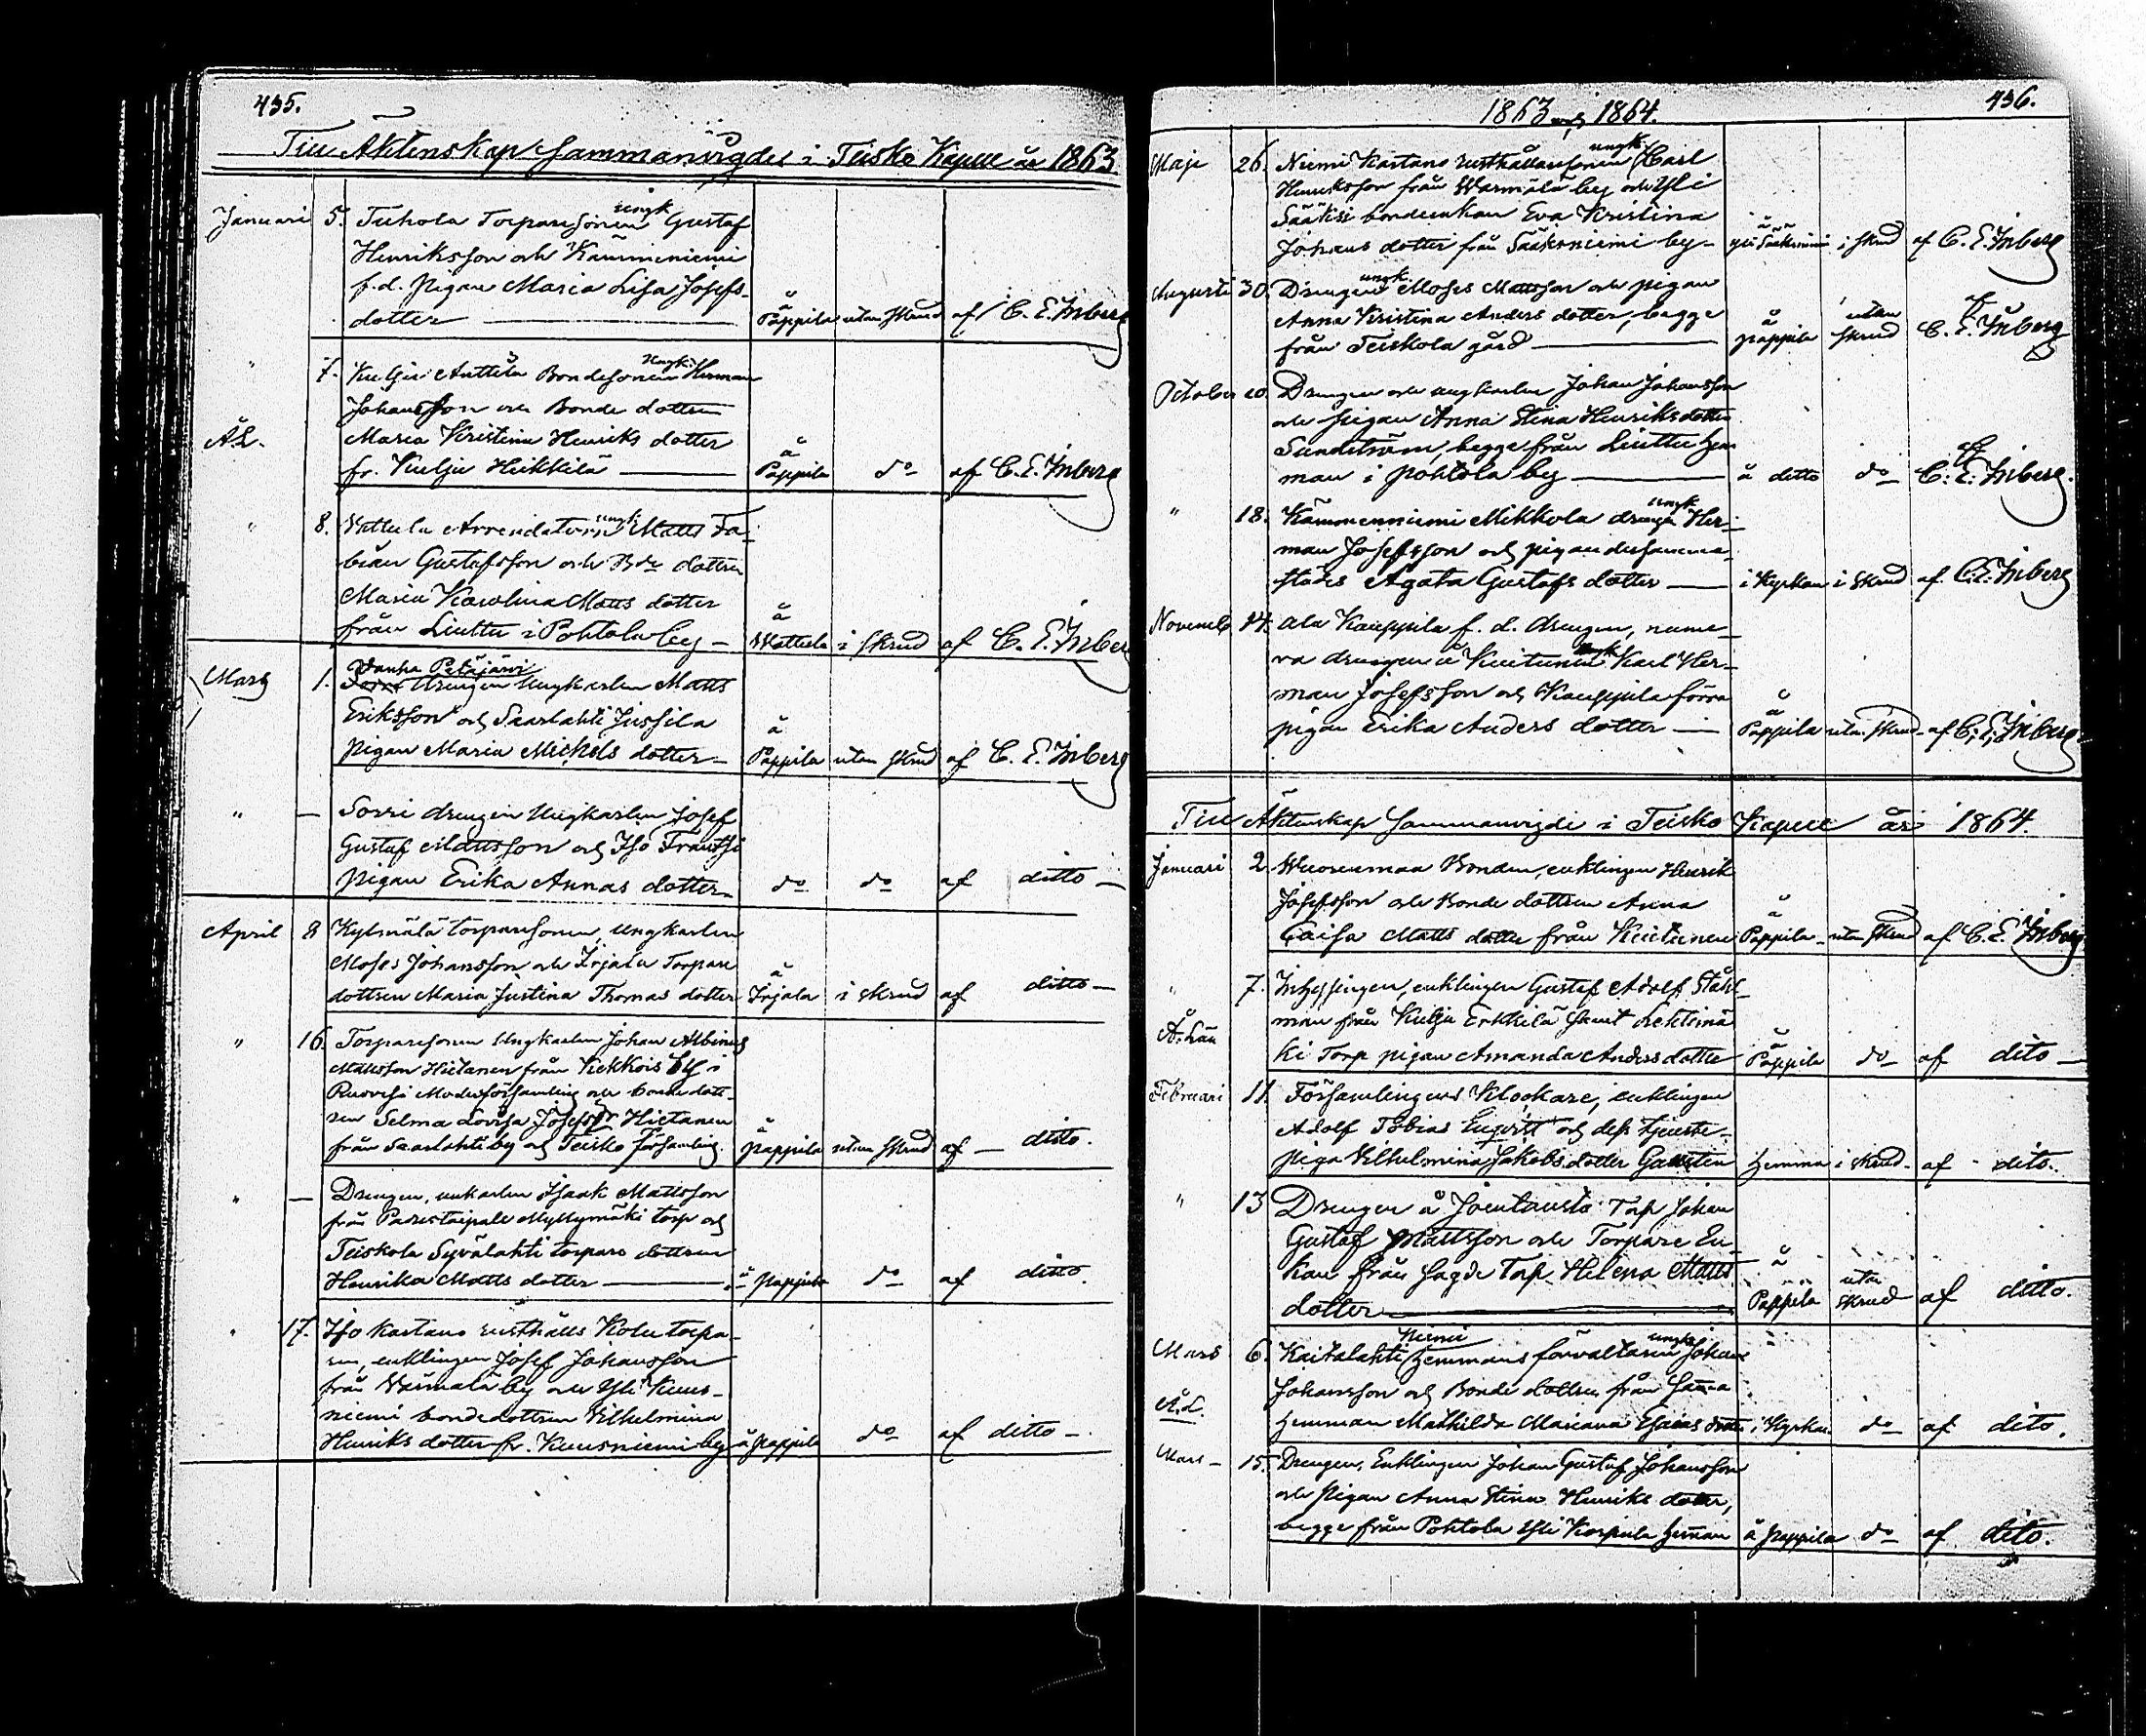 435.
Till Äktenskap Sammanvigdes i Teisko Kapell år 1863.
Januari 5. Tuhola Torparesonen ungk Gustaf
Henriksson och Kämmeniemi
f.d. pigan Maria Lisa Josefs-
dotter — å Pappila utan skrud af C. E. Inberg
" 7. Kulju Anttila Bondesonen Ungk: Herman
Johansson och Bonde dottren
Ä.L. Maria Kristina Henriks dotter
fr. Kulju Heikkilä — å Pappila do af C. E. Inberg
" 8. Wattula Arrendatorn, ungk Matts Fa-
bian Gustafsson och Bde dottren
Maria Karolina Matts dotter
från Liuttu i Pohtola by — å Wattula i skrud af C. E. Inberg
Mars 1. Vanha Petäjärvi
drengen Ungkarlen Matts
Eriksson och Saarlahti Jussila
pigan Maria Michels dotter — å Pappila utan skrud af C. E. Inberg
" — Sorri drengen Ungkarlen Josef
Gustaf Mattsson och Iso Frantsi
pigan Erika Annas dotter — do do af ditto —
April 8 Kylmälä torparesonen, Ungkarlen
Moses Johansson och Irjala Torpare
dottren Maria Justina Thomas dotter å Irjala i skrud af ditto —
" 16. Torparesonen Ungkarlen Johan Albinus
Mattsson Hietanen från by i
Ruovesi Moderförsamling och bondedott-
ren Selma Lovisa Josefsdr Hietanen
från Saarlahti by och Teisko församling. å pappila utan skrud af — ditto.
" — Drengen, unkarlen Isaak Mattsson
från Padustaipale Myllymäki torp och
Teiskola Syvälahti torpare dottren
Henrika Matts dotter — å pappila do af ditto.
" 17. Iso Kartano rusthålls Kolu torpa-
ren, enklingen Josef Johansson
från Warmala by och Yli Kuus-
niemi bondedottren Vilhelmina
Henriks dotter fr. Kuusniemi by å pappila do af ditto —
1863 och 1864.
436.
Maji 26. Niemi Kartano rusthållaresonen ungk Carl
Henriksson från Warmälä by och Yli
Sääksi bondeenkan Eva Kristina
Johans dotter från Sääksniemi by — å Yli Sääksniemi i skrud af C. E. Inberg
Augusti 30. Drengen ungk. Moses Mattsson och pigan
Anna Kristina Anders dotter, begge
från Teiskola gård — å pappila utan skrud af C. E. Inberg
October 20. Drengen och ungkarlen Johan Johansson
och pigan Anna Stina Henriksdotter
Sundström, begge från Liuttu hem
man i Pohtola by — å ditto do af C. E. Inberg.
" 18. Kämmenniemi Mikkola drengen ungk Her-
man Josefsson och pigan dersamma-
städes Agata Gustafs dotter — i Kyrkan i skrud af C. E. Inberg
Novemb 14. Ala Kauppila f. d. drengen, numera
va drengen å Kuitunen ungk Karl Her-
man Josefsson och Kauppila förra
pigan Erika Anders dotter — å Pappila utan skrud af C. E. Inberg.
Till Äktenskap Sammanvigde i Teisko Kapell år 1864.
Januari 2. Wuorenmaa Bonden, enklingen Henrik
Josefsson och Bonde dottren Anna
Caisa Matts dotter från Kuitunen å Pappila utan skrud af C. E. Inberg
" 7. Inhysingen, enklingen Gustaf Adolf Stål-
man från Kulju Erkkilä samt
Ä. Län ki Torp pigan Amanda Anders dotter å Pappila do af dito —
Februari 11. Församlingens Klockare, enklingen
Adolf Tobias Enqvist och dess tjenste-
piga Vilhelmina Jakobs dotter hemma i skrud af dito.
" 13 Drengen å Joentausta Torp Johan
Gustaf Mattsson och Torpare En-
kan från Sagde Torp Helena Matts
dotter — å Pappila utan skrud af ditto.
Mars 6. Kaitalahti Niemi hemmans förvaltaren ungk Johan
Johansson och Bonde dottren från Sama
Ä.L. hemman Mathilda Mariana Esaias dotter i Kyrkan do af dito.
Mars — 15. Drengen, Enklingen Johan Gustaf Johansson
och pigan Anna Stina Henriks dotter,
begge från Pohtola Yli Korpula hemman å pappila do af dito.